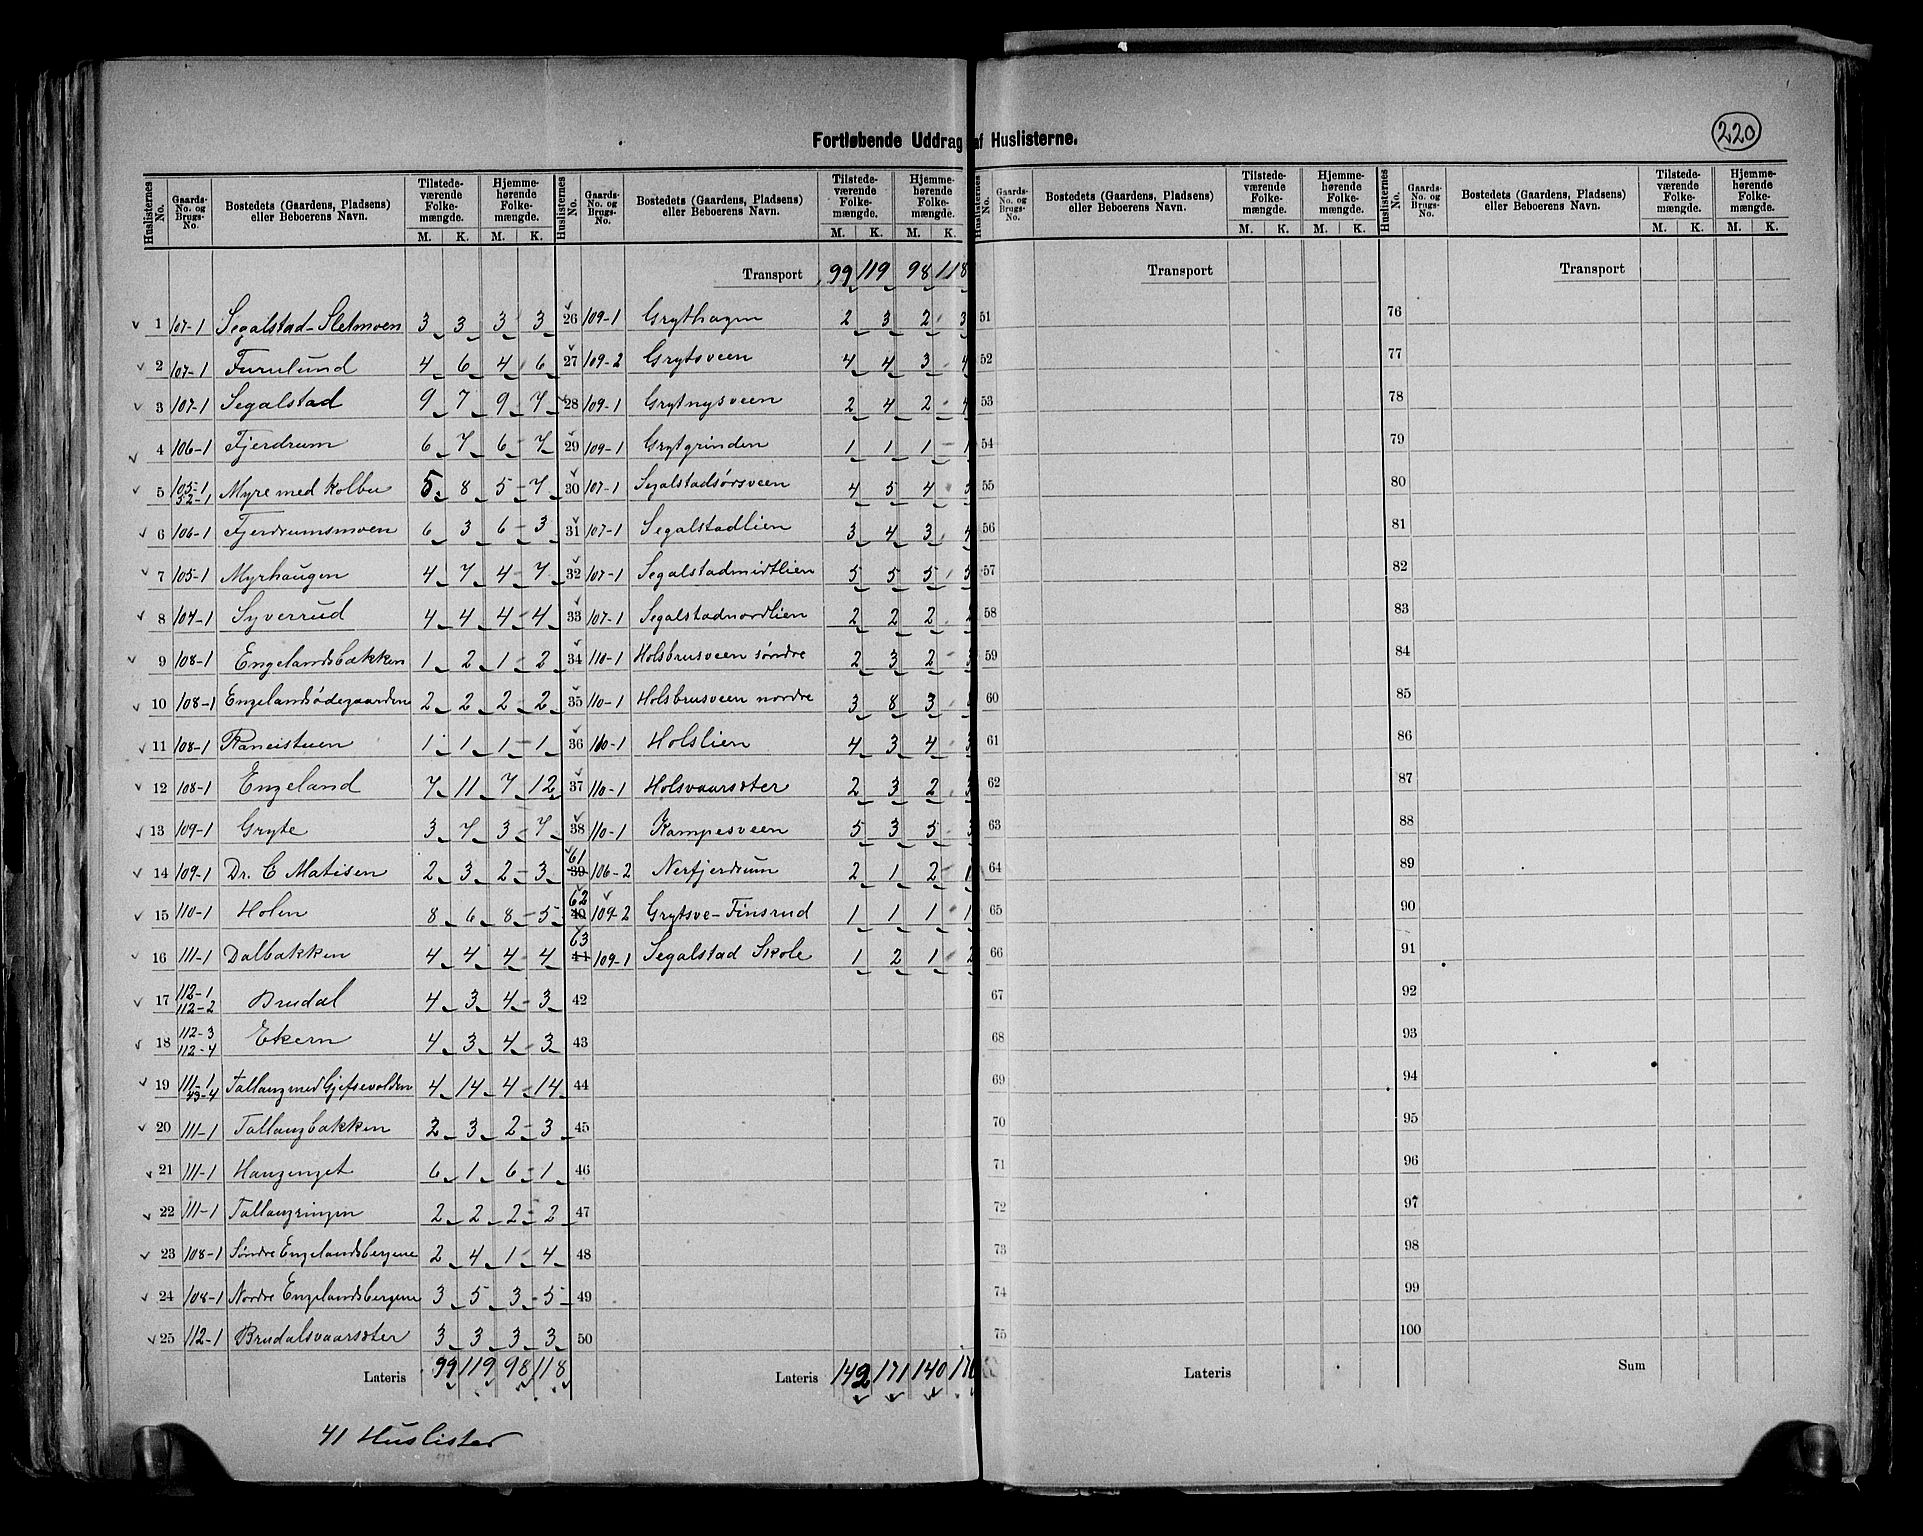 Fortløbende Uddrag af Huslisterne.
220
Huslisternes No. | Gaards-No. og Brugs-No. | Bostedets (Gaardens, Pladsens) eller Beboerens Navn. | Tilstedeværende Folkemængde. M. K. | Hjemmehørende Folkemængde. M. K.
1 107-1 Segalstad-Sletmoen 3 3 3 3
2 107-1 Furulund 4 6 4 6
3 107-1 Segalstad 9 7 9 7
4 106-1 Fjerdrum 6 7 6 7
5 105-1 52-1 Myre med Kolbu 5 8 5 7
6 106-1 Fjerdrumsmoen 6 3 6 3
7 105-1 Myrhaugen 4 7 4 7
8 104-1 Syverrud 4 4 4 4
9 108-1 Engelandsbakken 1 2 1 2
10 108-1 Engelandsødegaarden 2 2 2 2
11 108-1 1 1 1 1
12 108-1 Engeland 7 11 7 12
13 109-1 Gryte 3 7 3 7
14 109-1 Dr. C Matisen 2 3 2 3
15 110-1 Holen 8 6 8 5
16 111-1 Dalbakken 4 4 4 4
17 112-1 112-2 Brudal 4 3 4 3
18 112-3 112-4 Ekern 4 3 4 3
19 111-1 43-4 Tallaug med Gjefsevolden 4 14 4 14
20 111-1 Tallaugbakken 2 3 2 3
21 111-1 Haugenget 6 1 6 1
22 111-1 Tallaugringen 2 2 2 2
23 108-1 Søndre Engelandsbergene 2 4 1 4
24 108-1 Nordre Engelandsbergene 3 5 3 5
25 112-1 Brudalsvaarsæter 3 3 3 3
Lateris 99 119 98 118
41 Huslister
Huslisternes No. | Gaards-No. og Brugs-No. | Bostedets (Gaardens, Pladsens) eller Beboerens Navn. | Tilstedeværende Folkemængde. M. K. | Hjemmehørende Folkemængde. M. K.
Transport 99 119 98 118
26 109-1 Grythagen 2 3 2 3
27 109-2 Grytsveen 4 4 3 4
28 109-1 Grytnysveen 2 4 2 4
29 109-1 Grytgrinden 1 1 1 1
30 107-1 Segalstadsørsveen 4 5 4
31 107-1 Segalstadlien 3 4 3 4
32 107-1 Segalstadmidtlien 5 5 5 5
33 107-1 Segalstadnordlien 2 2 2 2
34 110-1 Holsbrusveen søndre 2 3 2 3
35 110-1 Holsbrusveen nordre 3 8 3
36 110-1 Holslien 4 3 4 3
37 110-1 Holsvaarsæter 2 3 2 3
38 110-1 Kampesveen 5 3 5 3
61 39 106-2 Nerfjerdrum 2 1 2 1
62 40 109-2 Grytsve-Finsrud 1 1 1 1
63 41 109-1 Segalstad Skole 1 2 1 2
42
43
44
45
46
47
48
49
50
Lateris 142 171 140 170
Huslisternes No. | Gaards-No. og Brugs-No. | Bostedets (Gaardens, Pladsens) eller Beboerens Navn. | Tilstedeværende Folkemængde. M. K. | Hjemmehørende Folkemængde. M. K.
Transport
51
52
53
54
55
56
57
58
59
60
61
62
63
64
65
66
67
68
69
70
71
72
73
74
75
Lateris
Huslisternes No. | Gaards-No. og Brugs-No. | Bostedets (Gaardens, Pladsens) eller Beboerens Navn. | Tilstedeværende Folkemængde. M. K. | Hjemmehørende Folkemængde. M. K.
Transport
76
77
78
79
80
81
82
83
84
85
86
87
88
89
90
91
92
93
94
95
96
97
98
99
100
Sum